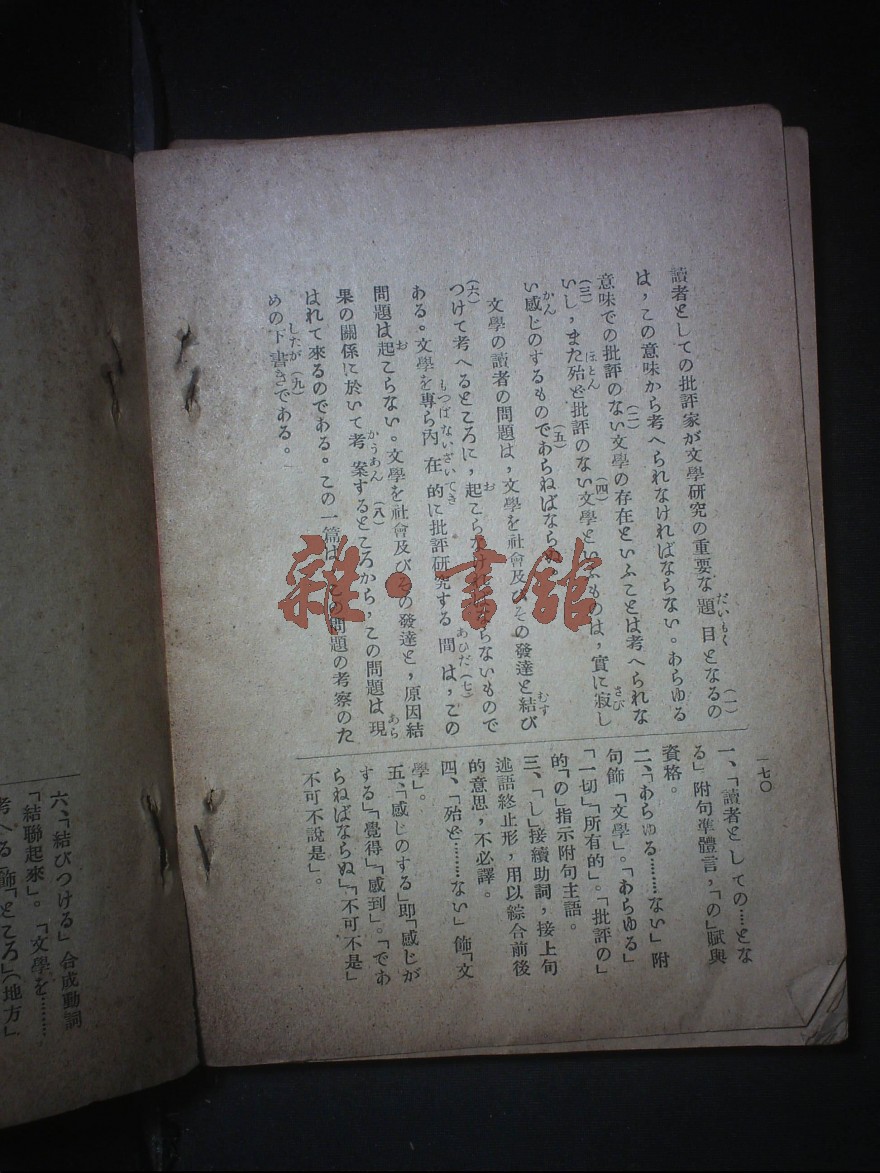 一七〇
讀者としての批評家が文學研究の重要な題目となるの(一)
は，この意味から考へられなければならない。あらゆる
意味での批評のない文學の存在といふことは考へられな
いし，また殆ど批評のない文學といふものは，實に寂し
い感じのするものであらねばならぬ。
文學の讀者の問題は，文學を社會及びその發達と結び
つけて考へるところに，起こらなければならないもので
ある。文學を專ら內在的に批評研究する間は，この
問題は起こらない。文學を社會及びその發達と，原因結
果の關係に於いて考案するところから，この問題は現
はれて來るのである。この一篇は，この問題の考察のた
めの下書きである。
一、「讀者としての……とな
る」附句準體言，「の」賦與
資格。
二、「あらゆる………ない」附
句飾「文學」。「あらゆる」
「一切」「所有的」。「批評の」
的「の」指示附句主語。
三、「し」接續助詞，接上句
述語終止形，用以綜合前後
的意思，不必譯。
四、「殆ど………ない」飾「文
學」。
五、「感じのする」即「感じが
する」「覺得」「感到」。「であ
らねばならぬ」「不可不是」
不可不說是」。
六、「結びつける」合成動詞
「結聯起來」。「文學を………
考へる」飾「ところ」(地方)
雜·書館